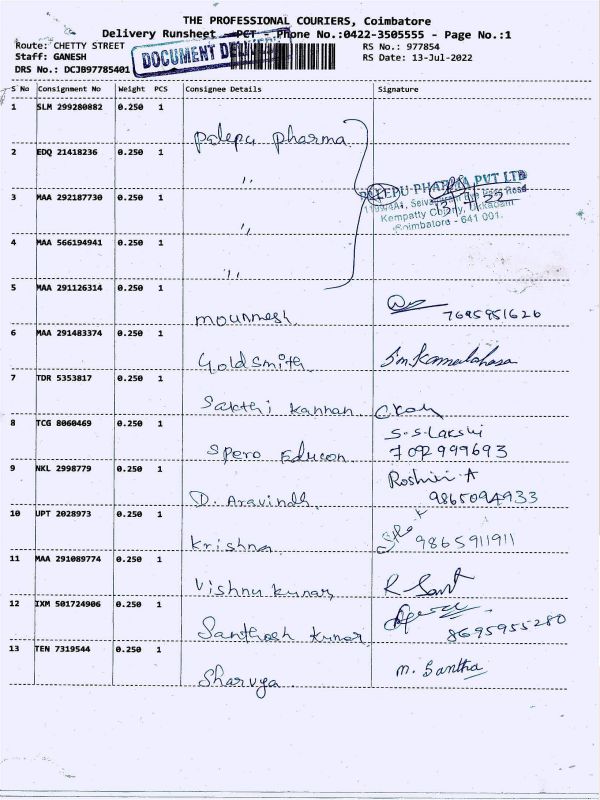 THE PROFESSIONAL COURIERS, Coimbatore
Delivery Runsheet - PCT - Phone No.:0422-3505555 - Page No.:1
Route: CHETTY STREET RS No.: 977854
Staff: GANESH DOCUMENT RS Date: 13-Jul-2022
DRS No.: DCJB97785401
S No Consignment No Weight PCS Consignee Details Signature
1 SLM 299280882 0.250 1
Palepu pharma
2 EDQ 21418236 0.250 1
,,
PALEPU PHARMA PVT LTD
3 MAA 292187730 0.250 1
13/7/22
Kempatty Colony, Ukkadam
,, Coimbatore - 641 001.
4 MAA 566194941 0.250 1
,,
5 MAA 291126314 0.250 1
mounmesh 7695951626
6 MAA 291483374 0.250 1
Goldsmith
7 TDR 5353817 0.250 1
Sakthi Kannan
8 TCG 8060469 0.250 1 S-S-Lakshi
Spero Educon 702999693
9 NKL 2998779 0.250 1 Roshini A
D. Aravindh 9865094933
10 UPT 2028973 0.250 1
Krishna 9865911911
11 MAA 291089774 0.250 1
Vishnu kumar R Sant
12 IXM 501724906 0.250 1
Santhosh kumar 8695955280
13 TEN 7319544 0.250 1 M. Santha
Sharvya